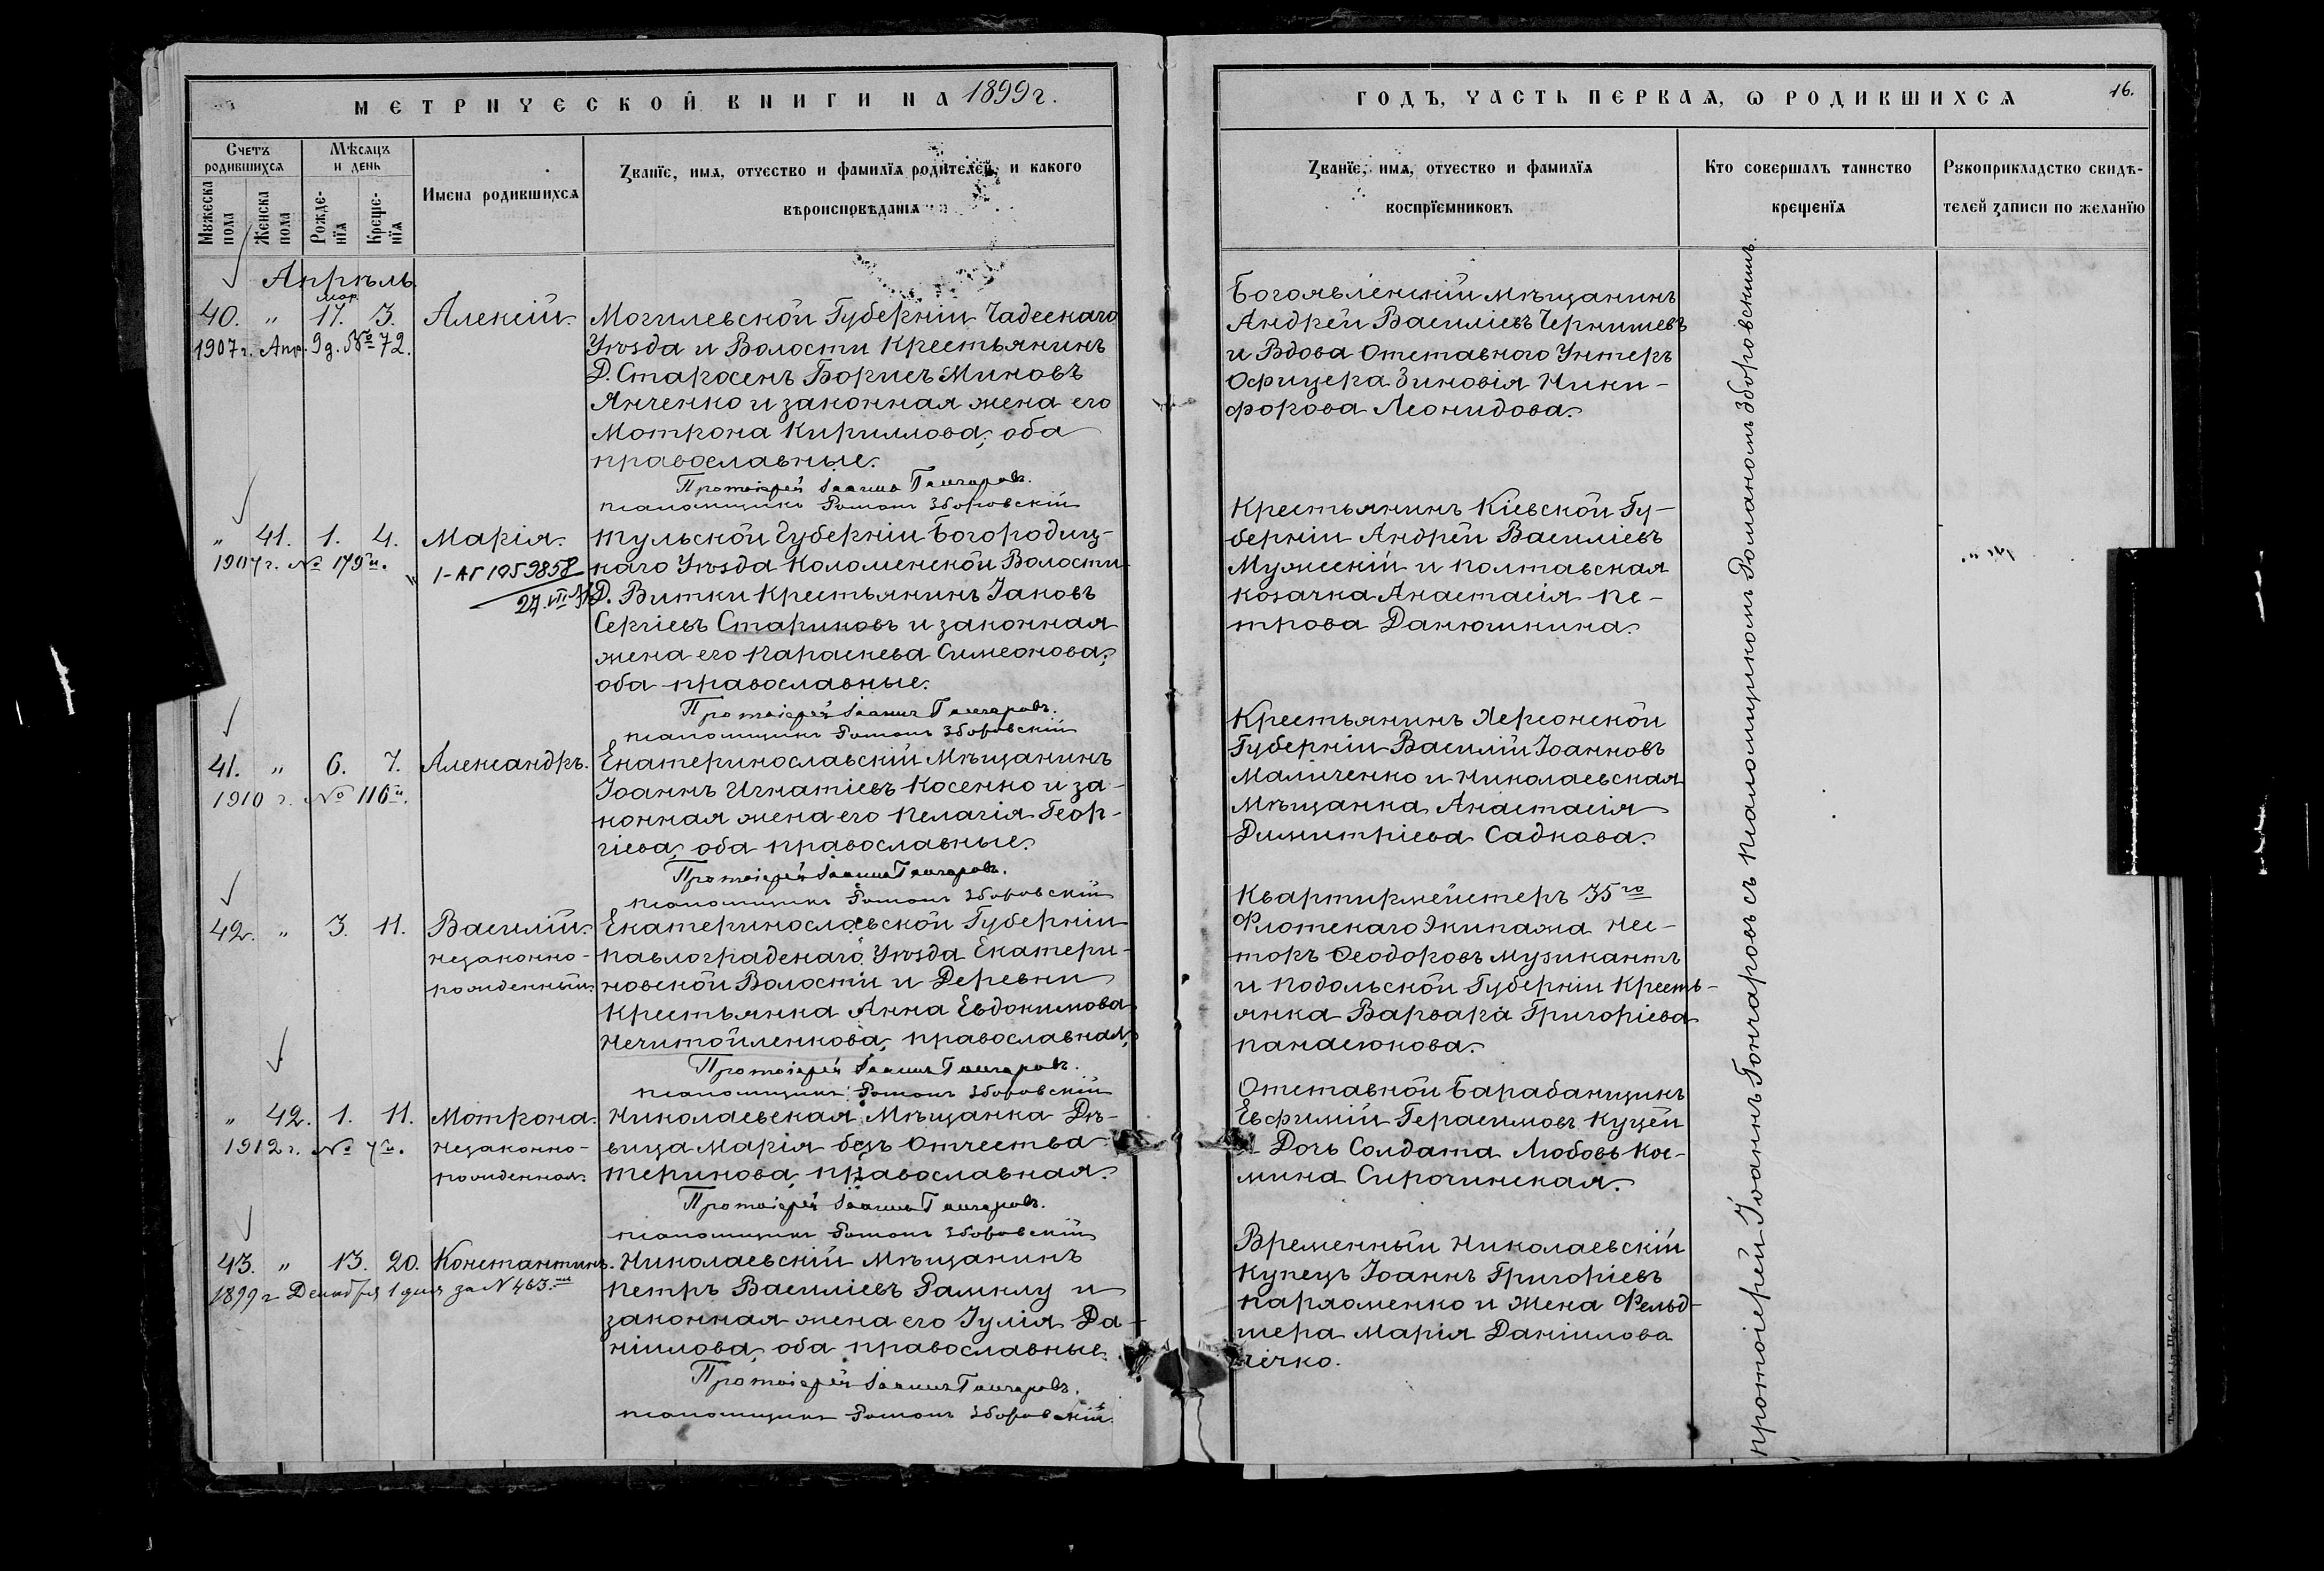 МЕТРИЧЕСКОЙ КНИГИ НА 1899 г.
Счетъ родившихся
Мужеска пола
Женска пола
Мѣсяцъ и день
Рожде-нїя
Креще-нїя
Имена родившихся
Званїе, имя, отчество и фамилїя родителей, и какого
вѣроисповѣданїя
Апрѣль.
мар.
40. " 17. 3. Алексій.
1907 г. Апр. 9 д. № 72.
Могилевской Губерніи Чадескаго
Уѣзда и Волости Крестьянинъ
Д. Старосенъ Борисъ Миновъ
Янченко и законная жена его
Мотрона Кириллова, оба
православные.
Протоіерей Іоаннъ Гончаровъ.
псаломщикъ Романъ Зборовскій
" 41. 1. 4. Марія.
1907 г. № 179й.
1-АГ 1059858
27.VII
Тульской Губерніи Богородиц-
каго Уѣзда Коломенской Волости
Д. Витки Крестьянинъ Іаковъ
Сергіевъ Стариковъ и законная
жена его Параскева Симеонова,
оба православные.
Протоіерей Іоаннъ Гончаровъ.
псаломщикъ Романъ Зборовскій
41. " 6. 7. Александръ.
1910 г. № 116й.
Екатеринославскій Мѣщанинъ
Іоаннъ Игнатіевъ Косенко и за-
конная жена его Пелагія Геор-
гіева, оба православные.
Протоіерей Іоаннъ Гончаровъ.
псаломщикъ Романъ Зборовскій
42. " 3. 11. Василій.
незаконно-
рожденный.
Екатеринославской Губерніи
Павлоградскаго Уѣзда Екатери-
новской Волости и Деревни
Крестьянка Анна Евдокимова
Нечитайленкова, православная.
Протоіерей Іоаннъ Гончаровъ.
псаломщикъ Романъ Зборовскій
" 42. 1. 11. Мотрона.
1912 г. № 7й.
незаконно-
рожденная.
Николаевская Мѣщанка Дѣ-
вица Марія безъ Отчества
Теринова, православная.
Протоіерей Іоаннъ Гончаровъ.
псаломщикъ Романъ Зборовскій
43. " 13. 20. Константинъ.
1899 г Декабря 1 дня за N 463.
Николаевскій Мѣщанинъ
Петръ Василіевъ Рамклу и
законная жена его Іулія Да-
ніилова, оба православные.
Протоіерей Іоаннъ Гончаровъ.
псаломщикъ Романъ Зборовскій.
ГОДЪ, ЧАСТЬ ПЕРВАЯ, Ѡ РОДИВШИХСЯ
16.
Званїе, имя, отчество и фамилїя
воспрїемниковъ
Кто совершалъ таинство
крещенїя
Рукоприкладство свидѣ-
телей записи по желанїю
Богоявленскій мѣщанинъ
Андрей Василіевъ Чернишевъ
и Вдова Отставного Унтеръ
Офицера Зиновія Ники-
форова Леонидова.
Крестьянинъ Кіевской Гу-
берніи Андрей Василіевъ
Мужескій и полтавская
козачка Анастасія Пе-
трова Данюшкина.
Крестьянинъ Херсонской
Губерніи Василій Іоанновъ
Маличенко и Николаевская
Мѣщанка Анастасія
Димитріева Садкова.
Квартирмейстеръ 35го
Флотскаго Экипажа Нес-
торъ Феодоровъ Музикантъ
и Подольской Губерніи Кресть-
янка Варвара Григоріева
Панасюкова.
Отставной Барабанщикъ
Евфимій Герасимовъ Куцей
и Дочь Солдата Любовь Кос-
мина Сирочинская.
Временный Николаевскій
Купецъ Іоаннъ Григоріевъ
Пархоменко и Жена Фельд-
шера Марія Даніилова
протоіерей Іоаннъ Гончаровъ съ псаломщикомъ Романомъ Зборовскимъ.